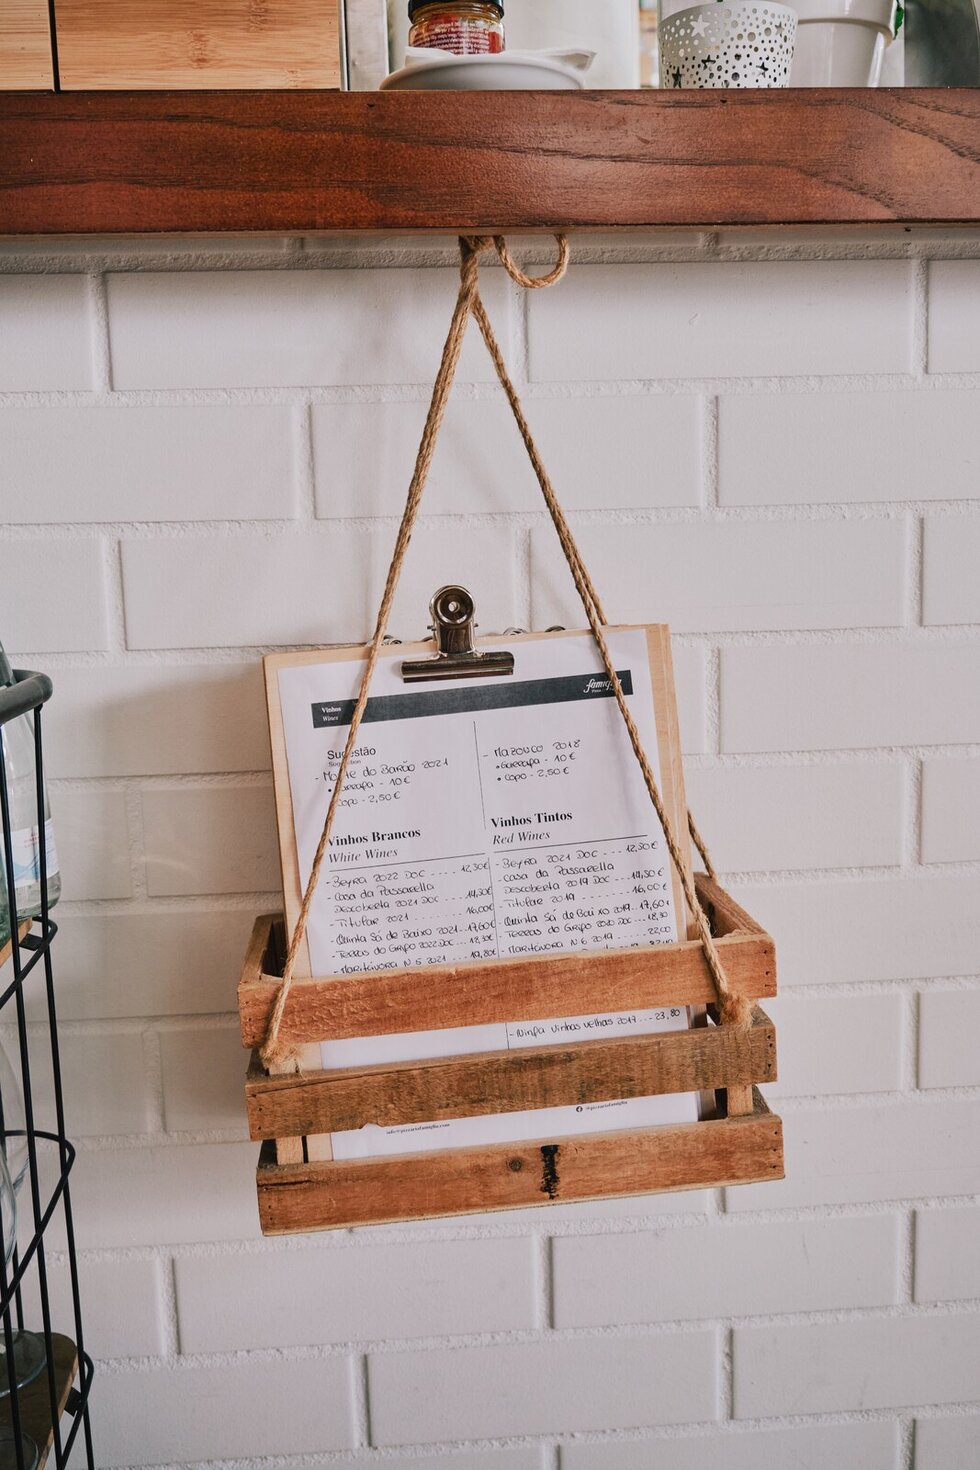 Vinhos
Wines
Sugestão
- Monte do Barão 2021
• Garrafa - 10€
• Copo - 2,50€
- Mazouco 2018
• Garrafa - 10€
• Copo - 2,50€
Vinhos Brancos
White Wines
- Beyra 2022 DOC - - - - 12,50€
- Casa da Passarella
Descoberta 2021 DOC ------ 14,50€
- Titular 2021 ......... 16,00€
- Quinta Sá de Baixo 2021 - 17,60€
- Terras do Grifo 2022 DOC ... 18,30€
- Maritávora Nº5 2021 ..... 18,80€
Vinhos Tintos
Red Wines
- Beyra 2021 DOC ---- 12,50€
- Casa da Passarella
Descoberta 2019 DOC ------ 14,50€
- Titular 2019 ---------- 16,00€
- Quinta Sá de Baixo 2019 .. 17,60€
- Terras do Grifo 2020 DOC --- 18,30
- Maritávora Nº6 2019 ..... 22,00
- Ninfa Vinhas Velhas 2017 ... - 23,80
info@pizzariafamiglia.com
@pizzariafamiglia